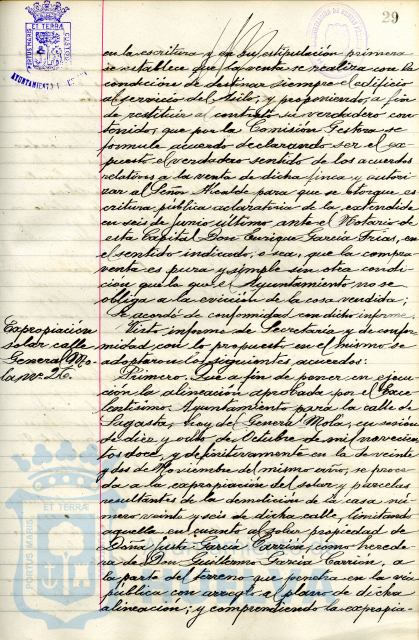 29
PORTUS MARIS ET TERRAE CUSTODIA
AYUNTAMIENTO
en la escritura y en su estipulación primera
se establece que la venta se realiza con la
condición de destinar siempre el edificio
al servicio del Asilo; y proponiendo, a fin
de restituir al contrato su verdadero con-
tenido, que por la Comisión Gestora se
formule acuerdo declarando ser el ex-
puesto el verdadero sentido de los acuerdos
relativos a la venta de dicha finca y autori-
zar al Señor Alcalde para que se otorgue es-
critura pública aclaratoria de la extendida
en seis de Junio último ante el Notario de
esta Capital Don Enrique García Frías, en
el sentido indicado, o sea, que la compra
venta es pura y simple sin otra condi-
ción que la que el Ayuntamiento no se
obliga a la evicción de la cosa vendida;
Se acordó de conformidad con dicho informe.
Expropiación
solar calle
General Mo-
la nº 26.
Visto informe de Secretaría y de confor-
midad con lo propuesto en el mismo se
adoptaron los siguientes acuerdos:
Primero. Que a fin de poner en ejecu-
ción la alineación aprobada por el Exce-
lentísimo Ayuntamiento para la calle de
Sagasta, hoy de General Mola, en sesión
de diez y ocho de Octubre de mil novecien-
tos doce, y definitivamente en la de veinte
y dos de Noviembre del mismo año, se proce-
da a la expropiación del solar y parcelas
resultantes de la demolición de la casa nú-
mero veinte y seis de dicha calle, limitando
aquella en cuanto al solar propiedad de
Doña Justa García Carrión, como herede-
ra de Don Guillermo García Carrión, a
la parte del terreno que penetra en la vía
pública con arreglo al plano de dicha
alineación; y comprendiendo la expropia-
PORTUS MARIS ET TERRAE